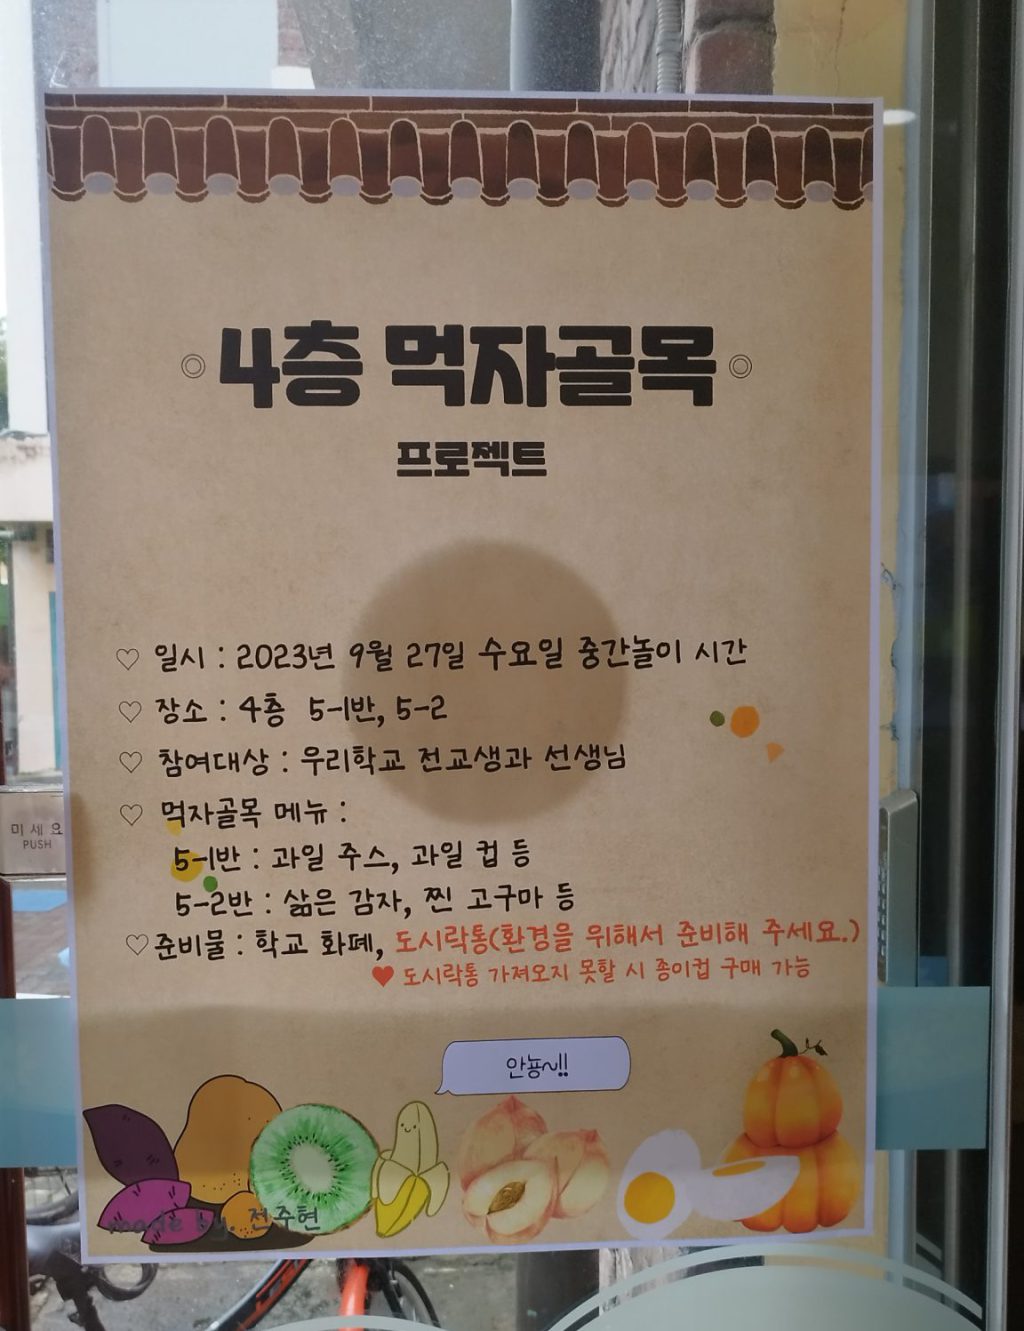 4층 먹자골목
프로젝트
♡ 일시 : 2023년 9월 27일 수요일 중간놀이 시간
♡ 장소 : 4층 5-1반, 5-2
♡ 참여대상 : 우리학교 전교생과 선생님
♡ 먹자골목 메뉴 :
5-1반 : 과일 주스, 과일 컵 등
5-2반 : 삶은 감자, 찐 고구마 등
♡ 준비물 : 학교 화폐, 도시락통(환경을 위해서 준비해 주세요.)
♥ 도시락통 가져오지 못할 시 종이컵 구매 가능
안뇽~!!
made by. 전주현
미세요
PUSH